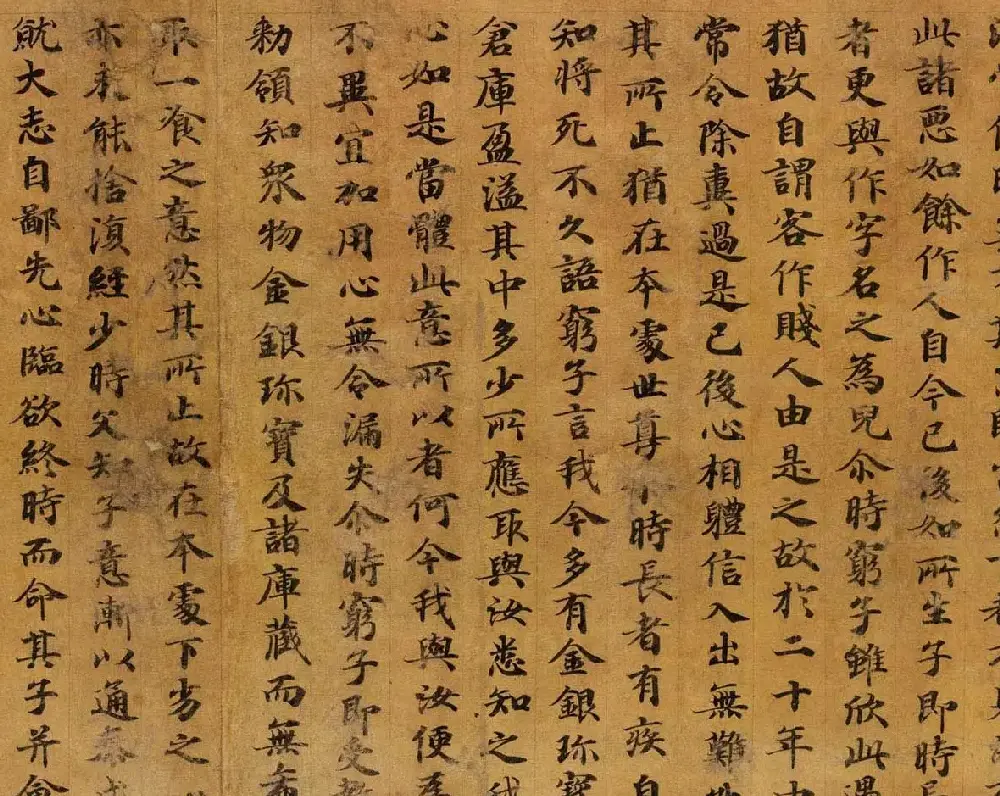 此諸惡如餘作人自今已後如所生子即時長
者更與作字名之為兒尒時窮子雖欣此遇
猶故自謂客作賤人由是之故於二十年
常令除糞過是已後心相體信入出無難
其所止猶在本處世尊尒時長者有疾自
知將死不久語窮子言我今多有金銀珍寶
倉庫盈溢其中多少所應取與汝悉知之我
心如是當體此意所以者何今我與汝便為
不異宜加用心無令漏失尒時窮子即受教
勑領知眾物金銀珍寶及諸庫藏而無悕
取一飡之意然其所止故在本處下劣之
亦未能捨復經少時父知子意漸以通泰成
就大志自鄙先心臨欲終時而命其子并會